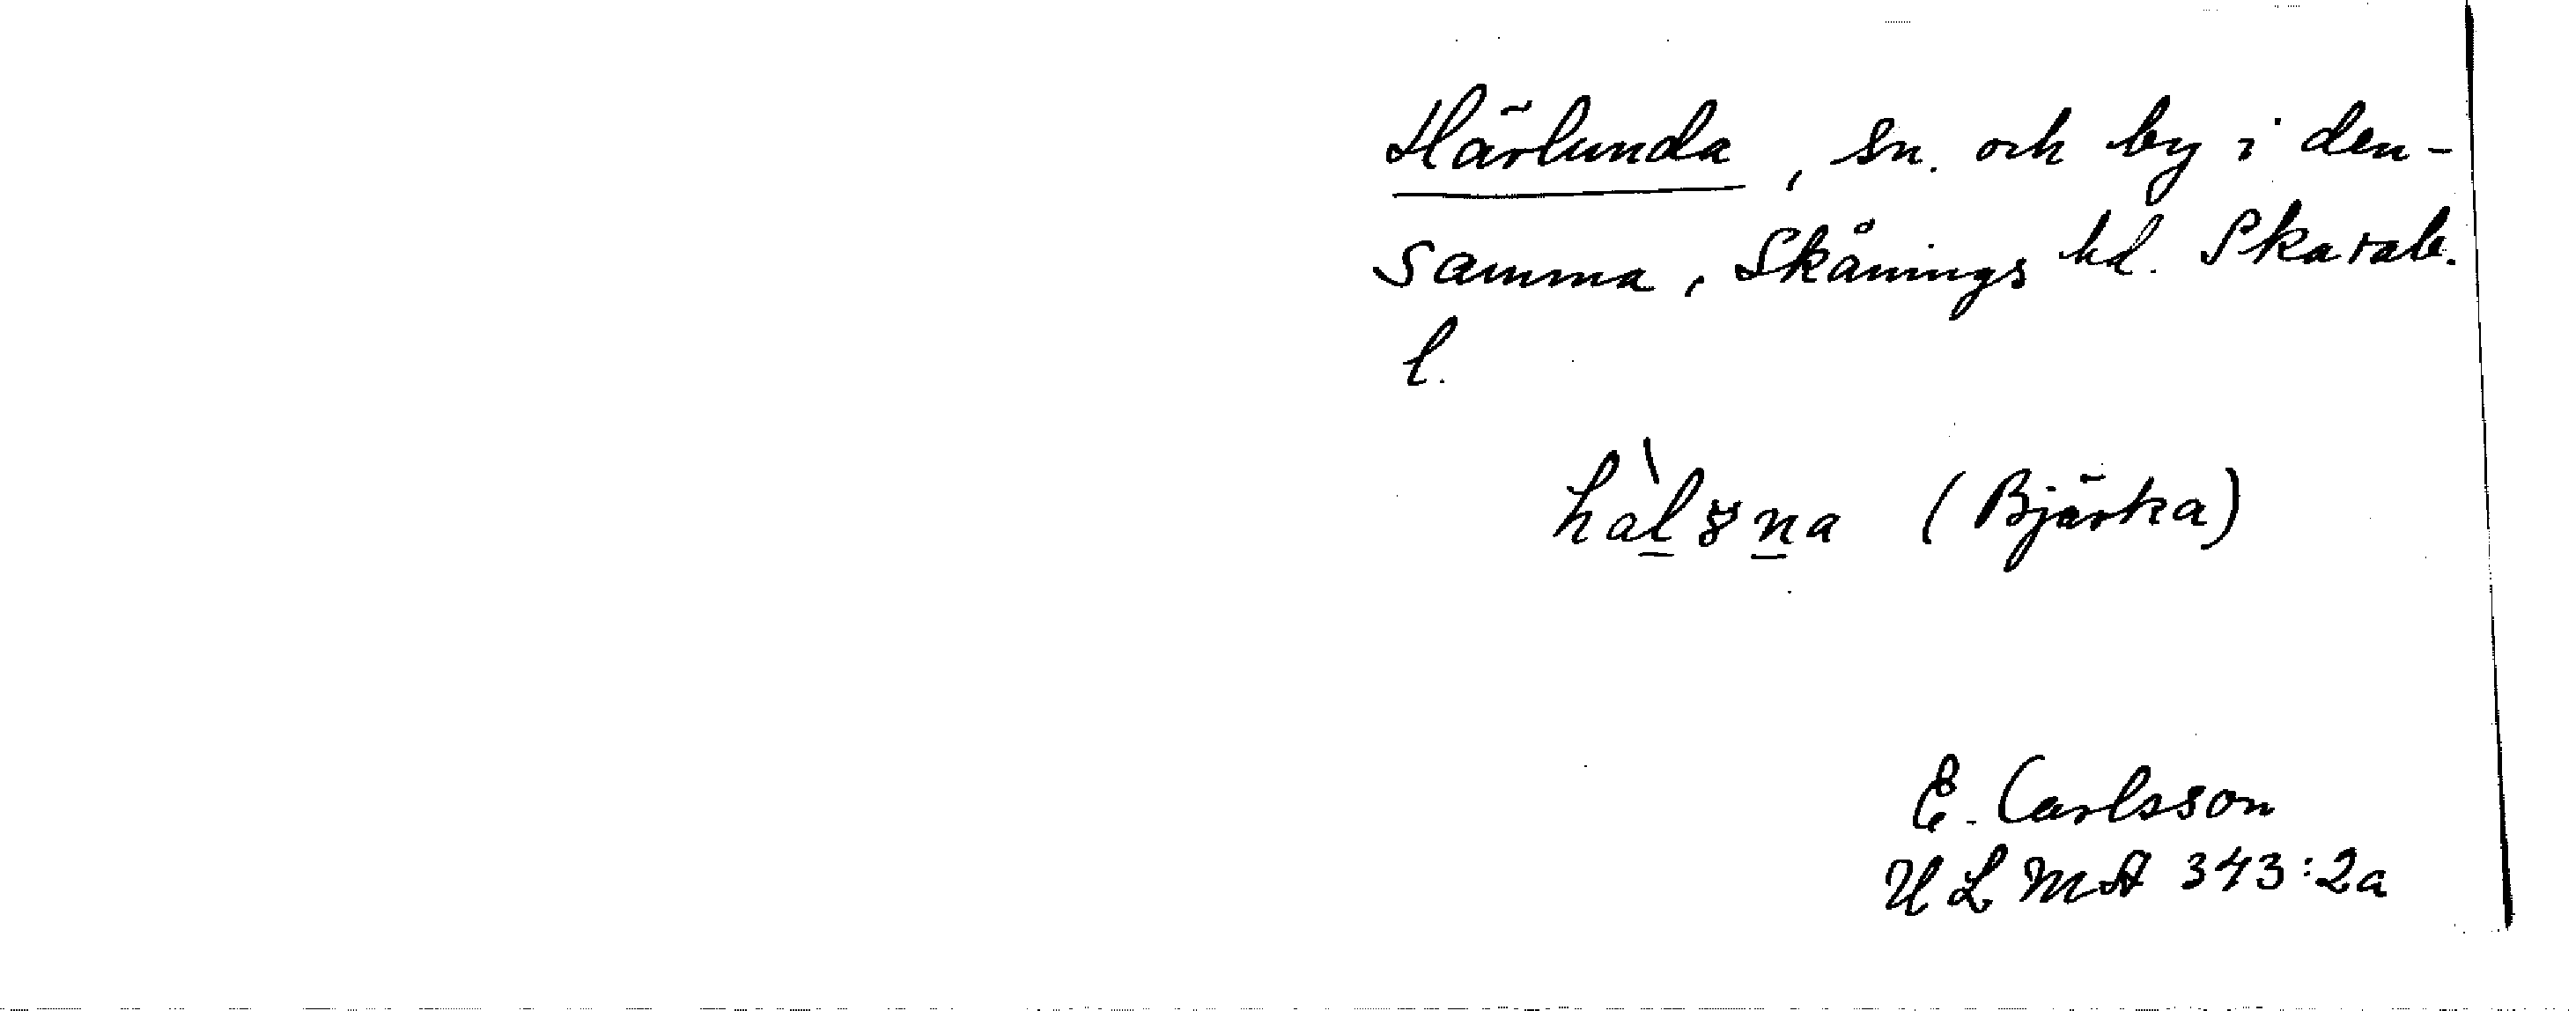 Härlunda, sn. och by i den-
samma, Skånings hd. Skarab.
l.
hàlȣna (Bjärka)
E. Carlsson
ULMA 343:2a